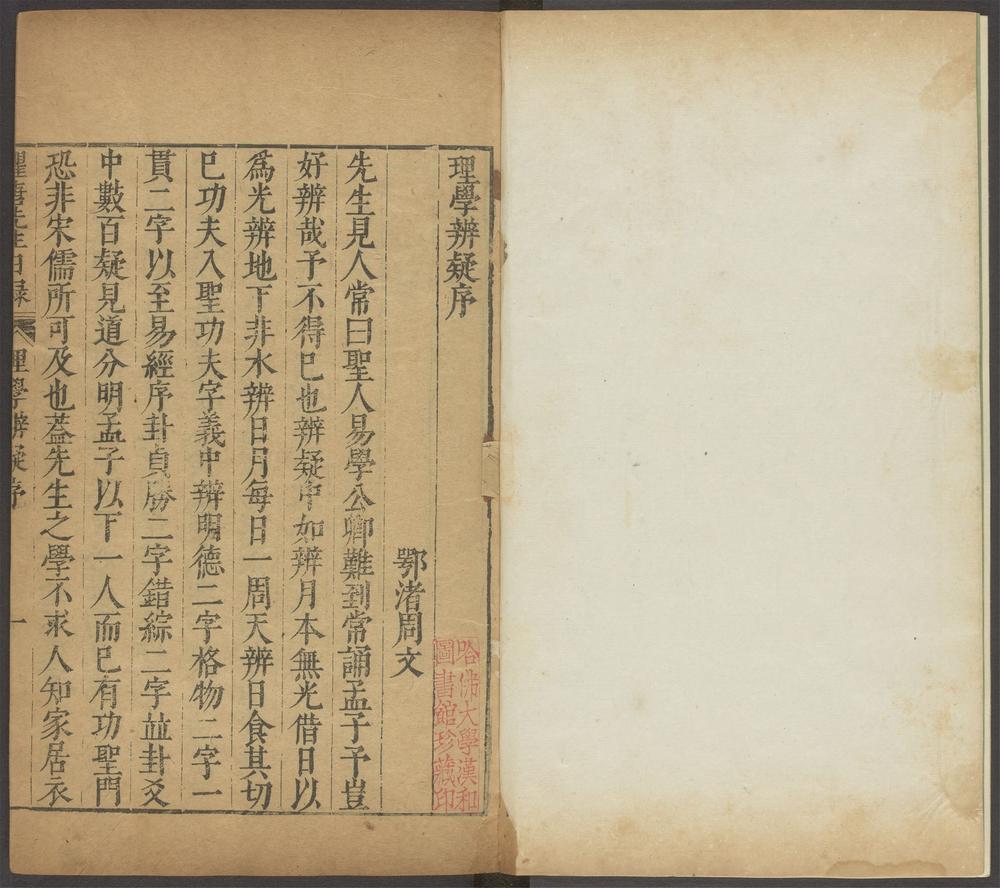 理學辨疑序
鄂渚周文
先生見人常曰聖人易學公卿難到常誦孟子予豈
好辨哉予不得已也辨疑中如辨月本無光借日以
爲光辨地下非水辨日月每日一周天辨日食其切
巳功夫入聖功夫字義中辨明德二字格物二字一
貫二字以至易經序卦貞勝二字錯綜二字並卦爻
中數百疑見道分明孟子以下一人而巳有功聖門
恐非宋儒所可及也葢先生之學不求人知家居衣
瞿唐先生日録 理學辨疑序 一
哈佛大學漢和
圖書館珍藏印